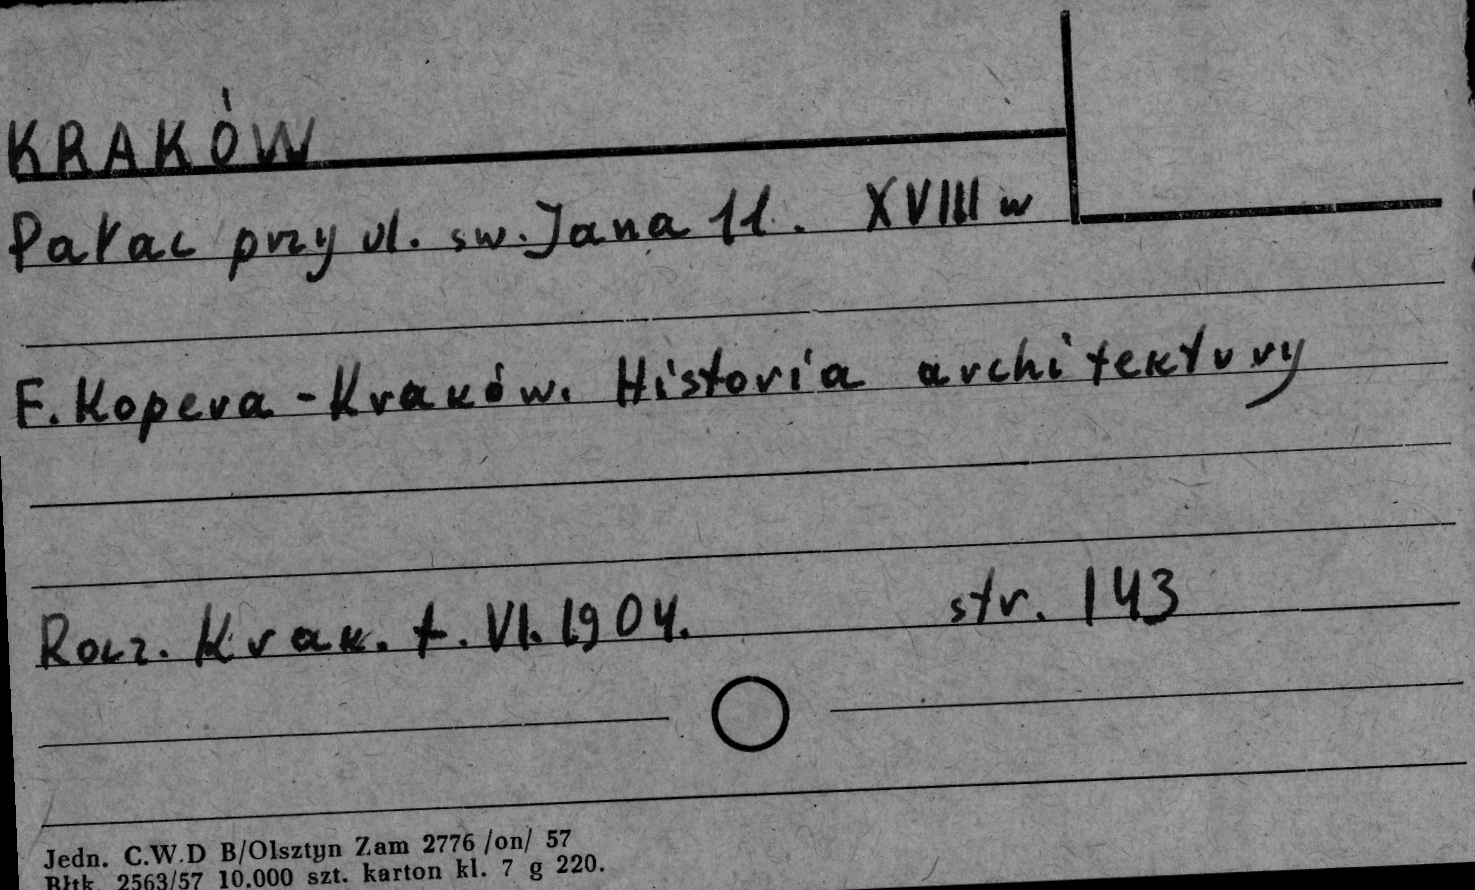 KRAKÓW
Pałac przy ul. sw. Jana 11. XVIII w
F. Kopera - Kraków. Historia architektury
Rocz. Krak. t. VI. 1904. str. 143
Jedn. C.W.D B/Olsztyn Zam 2776 /on/ 57
Błtk. 2563/57 10.000 szt. karton kl. 7 g 220.